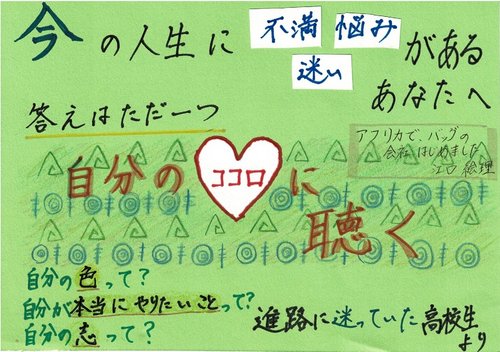 今の人生に
不満 悩み
迷い
がある
あなたへ
答えはただ一つ
アフリカで、バッグの
会社はじめました
江口 絵理
自分のココロに
聴く
自分の色って?
自分が本当にやりたいことって?
自分の志って?
進路に迷っていた高校生
より